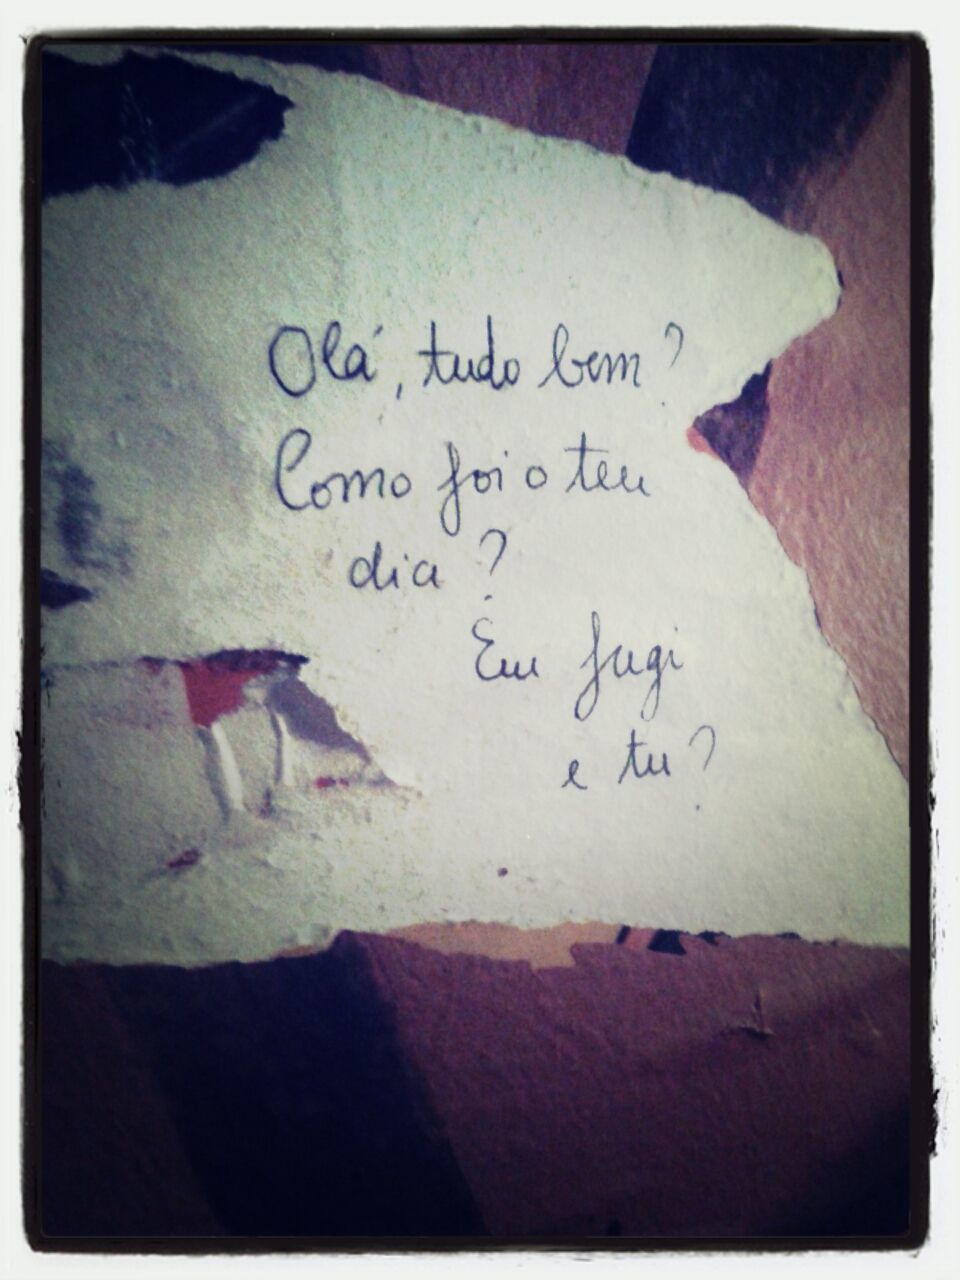 Olá, tudo bem?
Como foi o teu
dia?
Eu fugi
e tu?